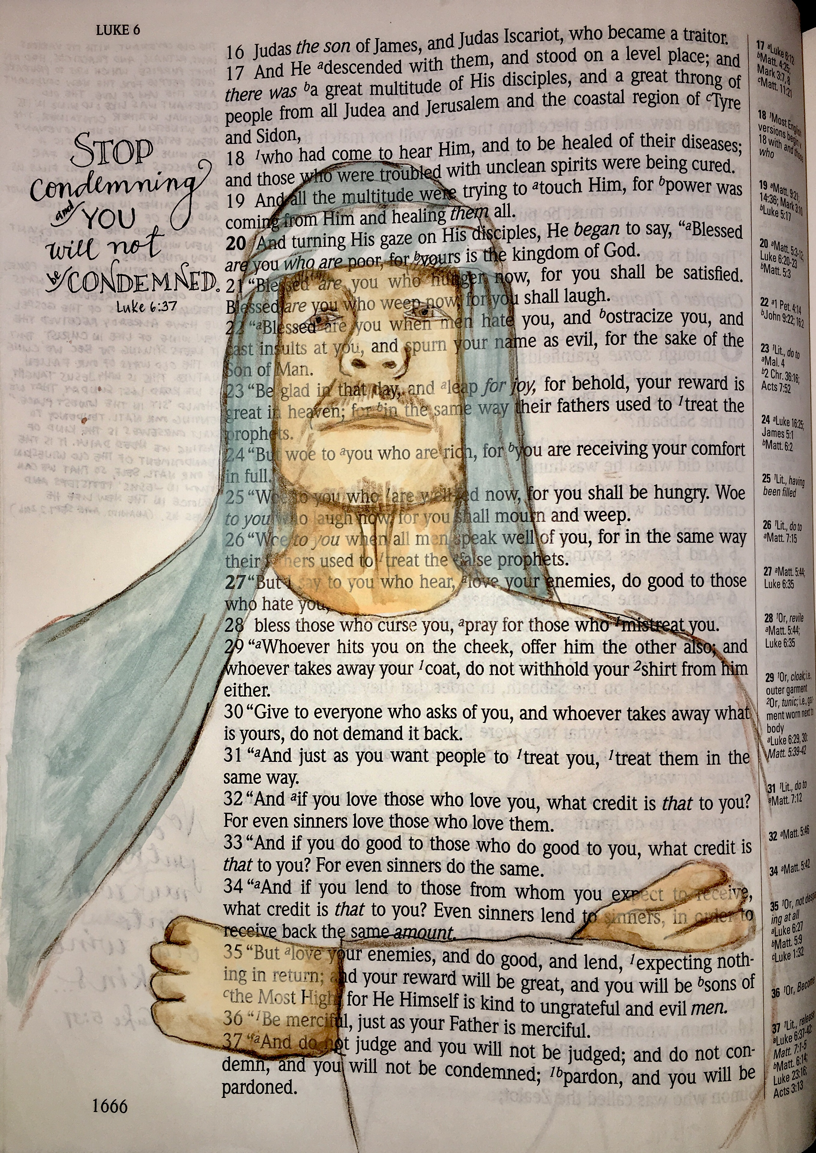 LUKE 6
STOP
condemning
and YOU
will not
be CONDEMNED.
Luke 6:37
16 Judas the son of James, and Judas Iscariot, who became a traitor.
17 And He ᵃdescended with them, and stood on a level place; and
there was ᵇa great multitude of His disciples, and a great throng of
people from all Judea and Jerusalem and the coastal region of ᶜTyre
and Sidon,
18 ¹who had come to hear Him, and to be healed of their diseases;
and those who were troubled with unclean spirits were being cured.
19 And all the multitude were trying to ᵃtouch Him, for ᵇpower was
coming from Him and healing them all.
20 And turning His gaze on His disciples, He began to say, “ᵃBlessed
are you who are poor, for ᵇyours is the kingdom of God.
21 “Blessed are you who hunger now, for you shall be satisfied.
Blessed are you who weep now, for you shall laugh.
22 “ᵃBlessed are you when men hate you, and ᵇostracize you, and
cast insults at you, and spurn your name as evil, for the sake of the
Son of Man.
23 “Be glad in that day, and ᵃleap for joy, for behold, your reward is
great in heaven; for ᵇin the same way their fathers used to ¹treat the
prophets.
24 “But woe to ᵃyou who are rich, for ᵇyou are receiving your comfort
in full.
25 “Woe to you who ¹are well-fed now, for you shall be hungry. Woe
to you who laugh now, for you shall mourn and weep.
26 “Woe to you when all men speak well of you, for in the same way
their fathers used to ¹treat the false prophets.
27 “But I say to you who hear, ᵃlove your enemies, do good to those
who hate you,
28 bless those who curse you, ᵃpray for those who ¹mistreat you.
29 “ᵃWhoever hits you on the cheek, offer him the other also; and
whoever takes away your ¹coat, do not withhold your ²shirt from him
either.
30 “Give to everyone who asks of you, and whoever takes away what
is yours, do not demand it back.
31 “ᵃAnd just as you want people to ¹treat you, ¹treat them in the
same way.
32 “And ᵃif you love those who love you, what credit is that to you?
For even sinners love those who love them.
33 “And if you do good to those who do good to you, what credit is
that to you? For even sinners do the same.
34 “ᵃAnd if you lend to those from whom you expect to receive,
what credit is that to you? Even sinners lend to sinners, in order to
receive back the same amount.
35 “But ᵃlove your enemies, and do good, and lend, ¹expecting noth-
ing in return; and your reward will be great, and you will be ᵇsons of
ᶜthe Most High; for He Himself is kind to ungrateful and evil men.
36 “¹Be merciful, just as your Father is merciful.
37 “ᵃAnd do not judge and you will not be judged; and do not con-
demn, and you will not be condemned; ¹ᵇpardon, and you will be
pardoned.
1666
17 ᵃLuke 6:12
ᵇMatt. 4:25;
Mark 3:7, 8
ᶜMatt. 11:21
18 ¹Most
versions
18 with
who
19 ᵃMatt. 9:21;
14:36; Mark 3:10
ᵇLuke 5:17
20 ᵃMatt. 5:3-12;
Luke 6:20-23
ᵇMatt. 5:3
22 ᵃ1 Pet. 4:14
ᵇJohn 9:22; 16:2
23 ¹Lit., do to
ᵃMal. 4
ᵇ2 Chr. 36:16;
Acts 7:52
24 ᵃLuke 16:25;
James 5:1
ᵇMatt. 6:2
25 ¹Lit., having
been filled
26 ¹Lit., do to
ᵃMatt. 7:15
27 ᵃMatt. 5:44;
Luke 6:35
28 ¹Or, revile
ᵃMatt. 5:44;
Luke 6:35
29 ¹Or, cloak; i.e.
outer garment
²Or, tunic; i.e.,
ment worn next
body
ᵃLuke 6:29, 30;
Matt. 5:39-42
31 ¹Lit., do to
ᵃMatt. 7:12
32 ᵃMatt. 5:46
34 ᵃMatt. 5:42
35 ¹Or, not
ing at all
ᵃLuke 6:27
ᵇMatt. 5:9
ᶜLuke 1:32
36 ¹Or, Become
37 ¹Lit., release
ᵃLuke 6:37-42;
Matt. 7:1-5
ᵇMatt. 6:14;
Luke 23:16;
Acts 3:13